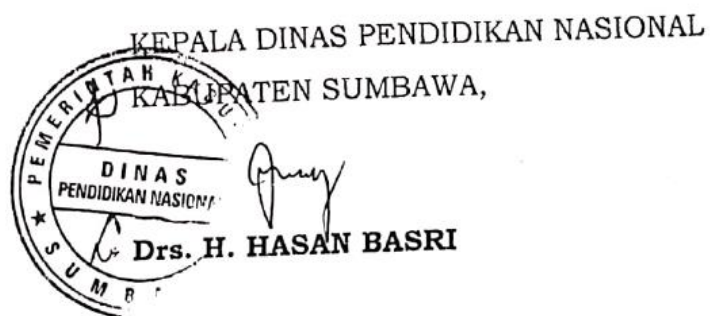 KEPALA DINAS PENDIDIKAN NASIONAL
KABUPATEN SUMBAWA,
PEMERINTAH KABU
DINAS
PENDIDIKAN NASIONA
★ SUMB
Drs. H. HASAN BASRI